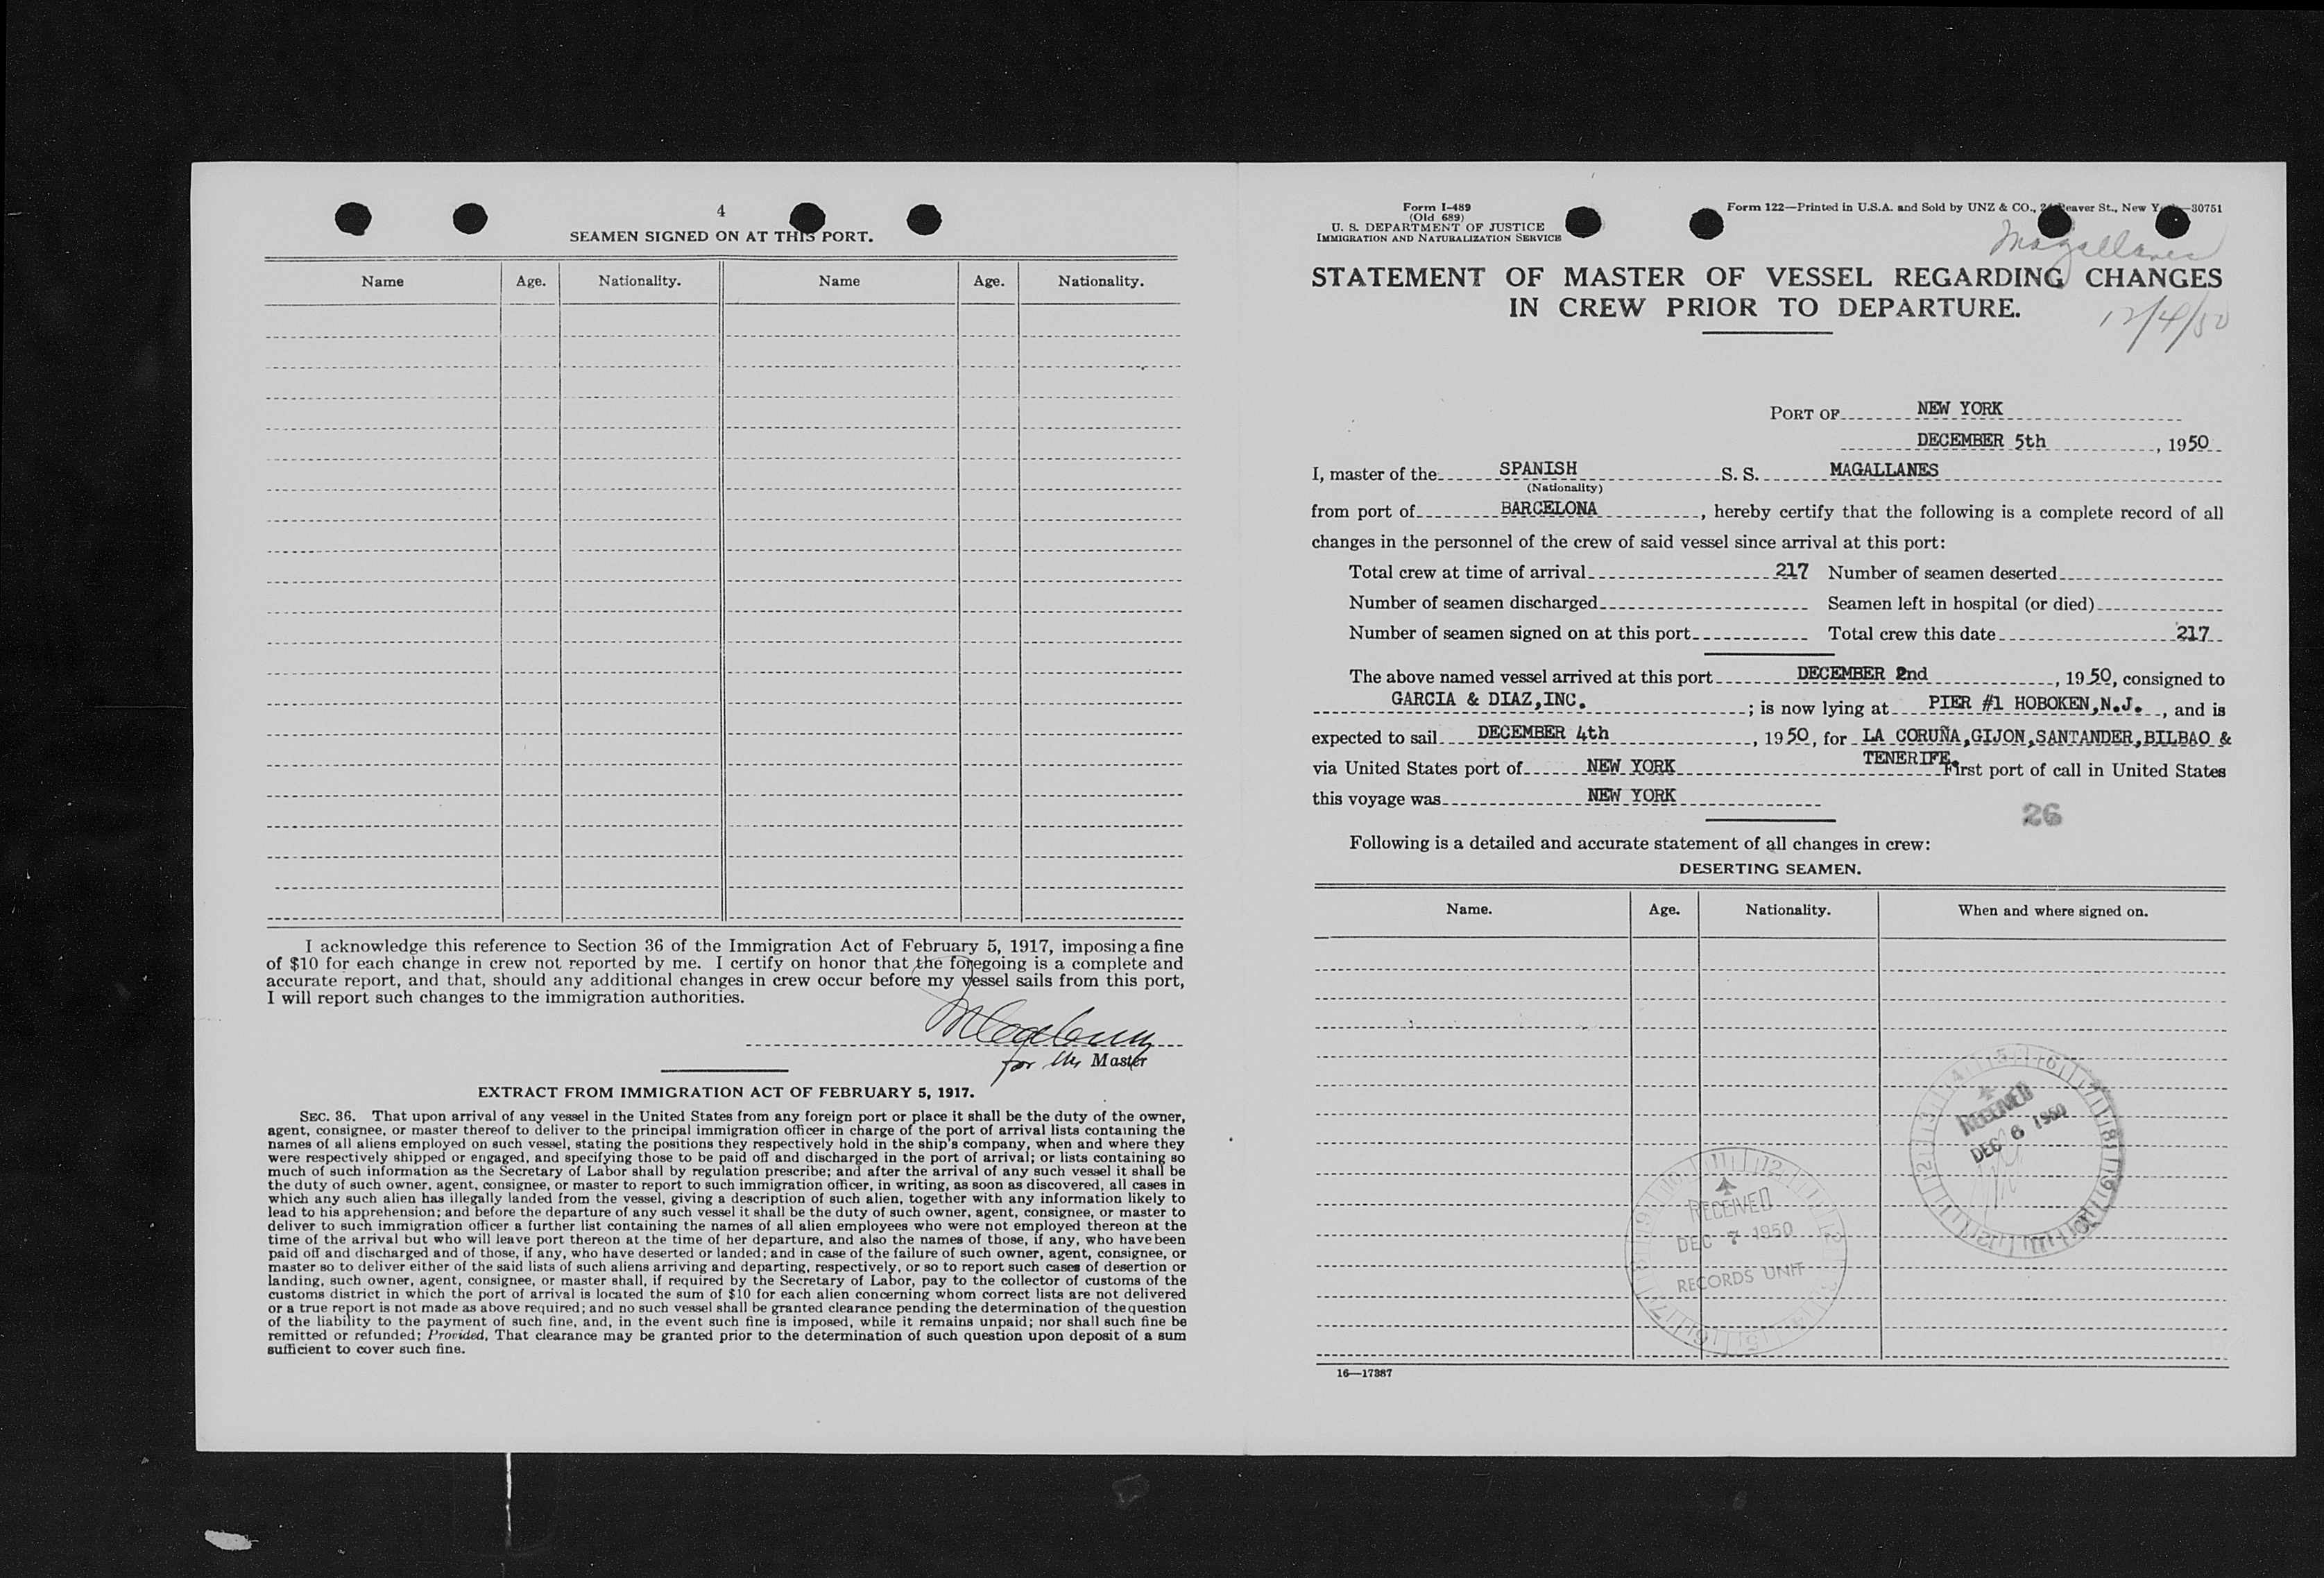 4
SEAMEN SIGNED ON AT THIS PORT.
Name Age. Nationality. Name Age. Nationality.
I acknowledge this reference to Section 36 of the Immigration Act of February 5, 1917, imposing a fine
of $10 for each change in crew not reported by me. I certify on honor that the foregoing is a complete and
accurate report, and that, should any additional changes in crew occur before my vessel sails from this port,
I will report such changes to the immigration authorities.
for the Master
EXTRACT FROM IMMIGRATION ACT OF FEBRUARY 5, 1917.
SEC. 36. That upon arrival of any vessel in the United States from any foreign port or place it shall be the duty of the owner,
agent, consignee, or master thereof to deliver to the principal immigration officer in charge of the port of arrival lists containing the
names of all aliens employed on such vessel, stating the positions they respectively hold in the ship's company, when and where they
were respectively shipped or engaged, and specifying those to be paid off and discharged in the port of arrival; or lists containing so
much of such information as the Secretary of Labor shall by regulation prescribe; and after the arrival of any such vessel it shall be
the duty of such owner, agent, consignee, or master to report to such immigration officer, in writing, as soon as discovered, all cases in
which any such alien has illegally landed from the vessel, giving a description of such alien, together with any information likely to
lead to his apprehension; and before the departure of any such vessel it shall be the duty of such owner, agent, consignee, or master to
deliver to such immigration officer a further list containing the names of all alien employees who were not employed thereon at the
time of the arrival but who will leave port thereon at the time of her departure, and also the names of those, if any, who have been
paid off and discharged and of those, if any, who have deserted or landed; and in case of the failure of such owner, agent, consignee, or
master so to deliver either of the said lists of such aliens arriving and departing, respectively, or so to report such cases of desertion or
landing, such owner, agent, consignee, or master shall, if required by the Secretary of Labor, pay to the collector of customs of the
customs district in which the port of arrival is located the sum of $10 for each alien concerning whom correct lists are not delivered
or a true report is not made as above required; and no such vessel shall be granted clearance pending the determination of the question
of the liability to the payment of such fine, and, in the event such fine is imposed, while it remains unpaid; nor shall such fine be
remitted or refunded; Provided, That clearance may be granted prior to the determination of such question upon deposit of a sum
sufficient to cover such fine.
Form I-489
(Old 689)
U. S. DEPARTMENT OF JUSTICE
IMMIGRATION AND NATURALIZATION SERVICE
Form 122—Printed in U.S.A. and Sold by UNZ & CO., Beaver St., New York—30751
Magallanes
STATEMENT OF MASTER OF VESSEL REGARDING CHANGES
IN CREW PRIOR TO DEPARTURE.
12/4/50
PORT OF NEW YORK
DECEMBER 5th, 1950
I, master of the SPANISH S. S. MAGALLANES
(Nationality)
from port of BARCELONA, hereby certify that the following is a complete record of all
changes in the personnel of the crew of said vessel since arrival at this port:
Total crew at time of arrival 217 Number of seamen deserted
Number of seamen discharged Seamen left in hospital (or died)
Number of seamen signed on at this port Total crew this date 217
The above named vessel arrived at this port DECEMBER 2nd, 1950, consigned to
GARCIA & DIAZ,INC.; is now lying at PIER #1 HOBOKEN,N.J., and is
expected to sail DECEMBER 4th, 1950, for LA CORUÑA,GIJON,SANTANDER,BILBAO &
TENERIFE.
via United States port of NEW YORK First port of call in United States
this voyage was NEW YORK
26
Following is a detailed and accurate statement of all changes in crew:
DESERTING SEAMEN.
Name. Age. Nationality. When and where signed on.
RECEIVED
DEC 6 1950
RECEIVED
DEC 7 1950
RECORDS UNIT
16—17387